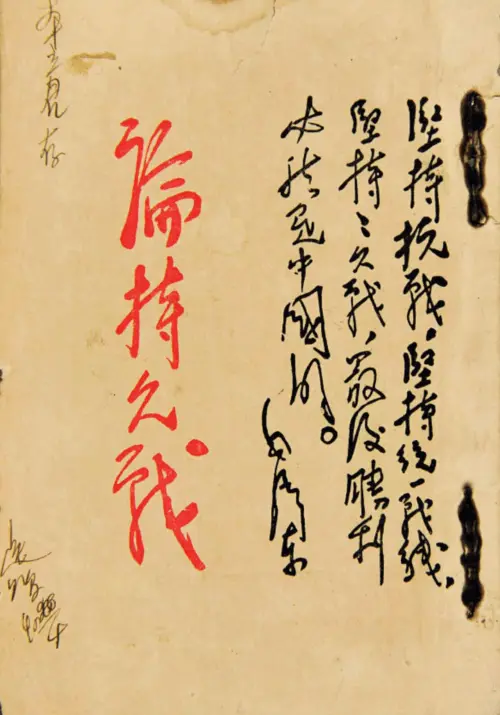 堅持抗戰、堅持統一戰綫、
堅持〻久戰、最後勝利
必然是中國的。毛澤東
論持久戰